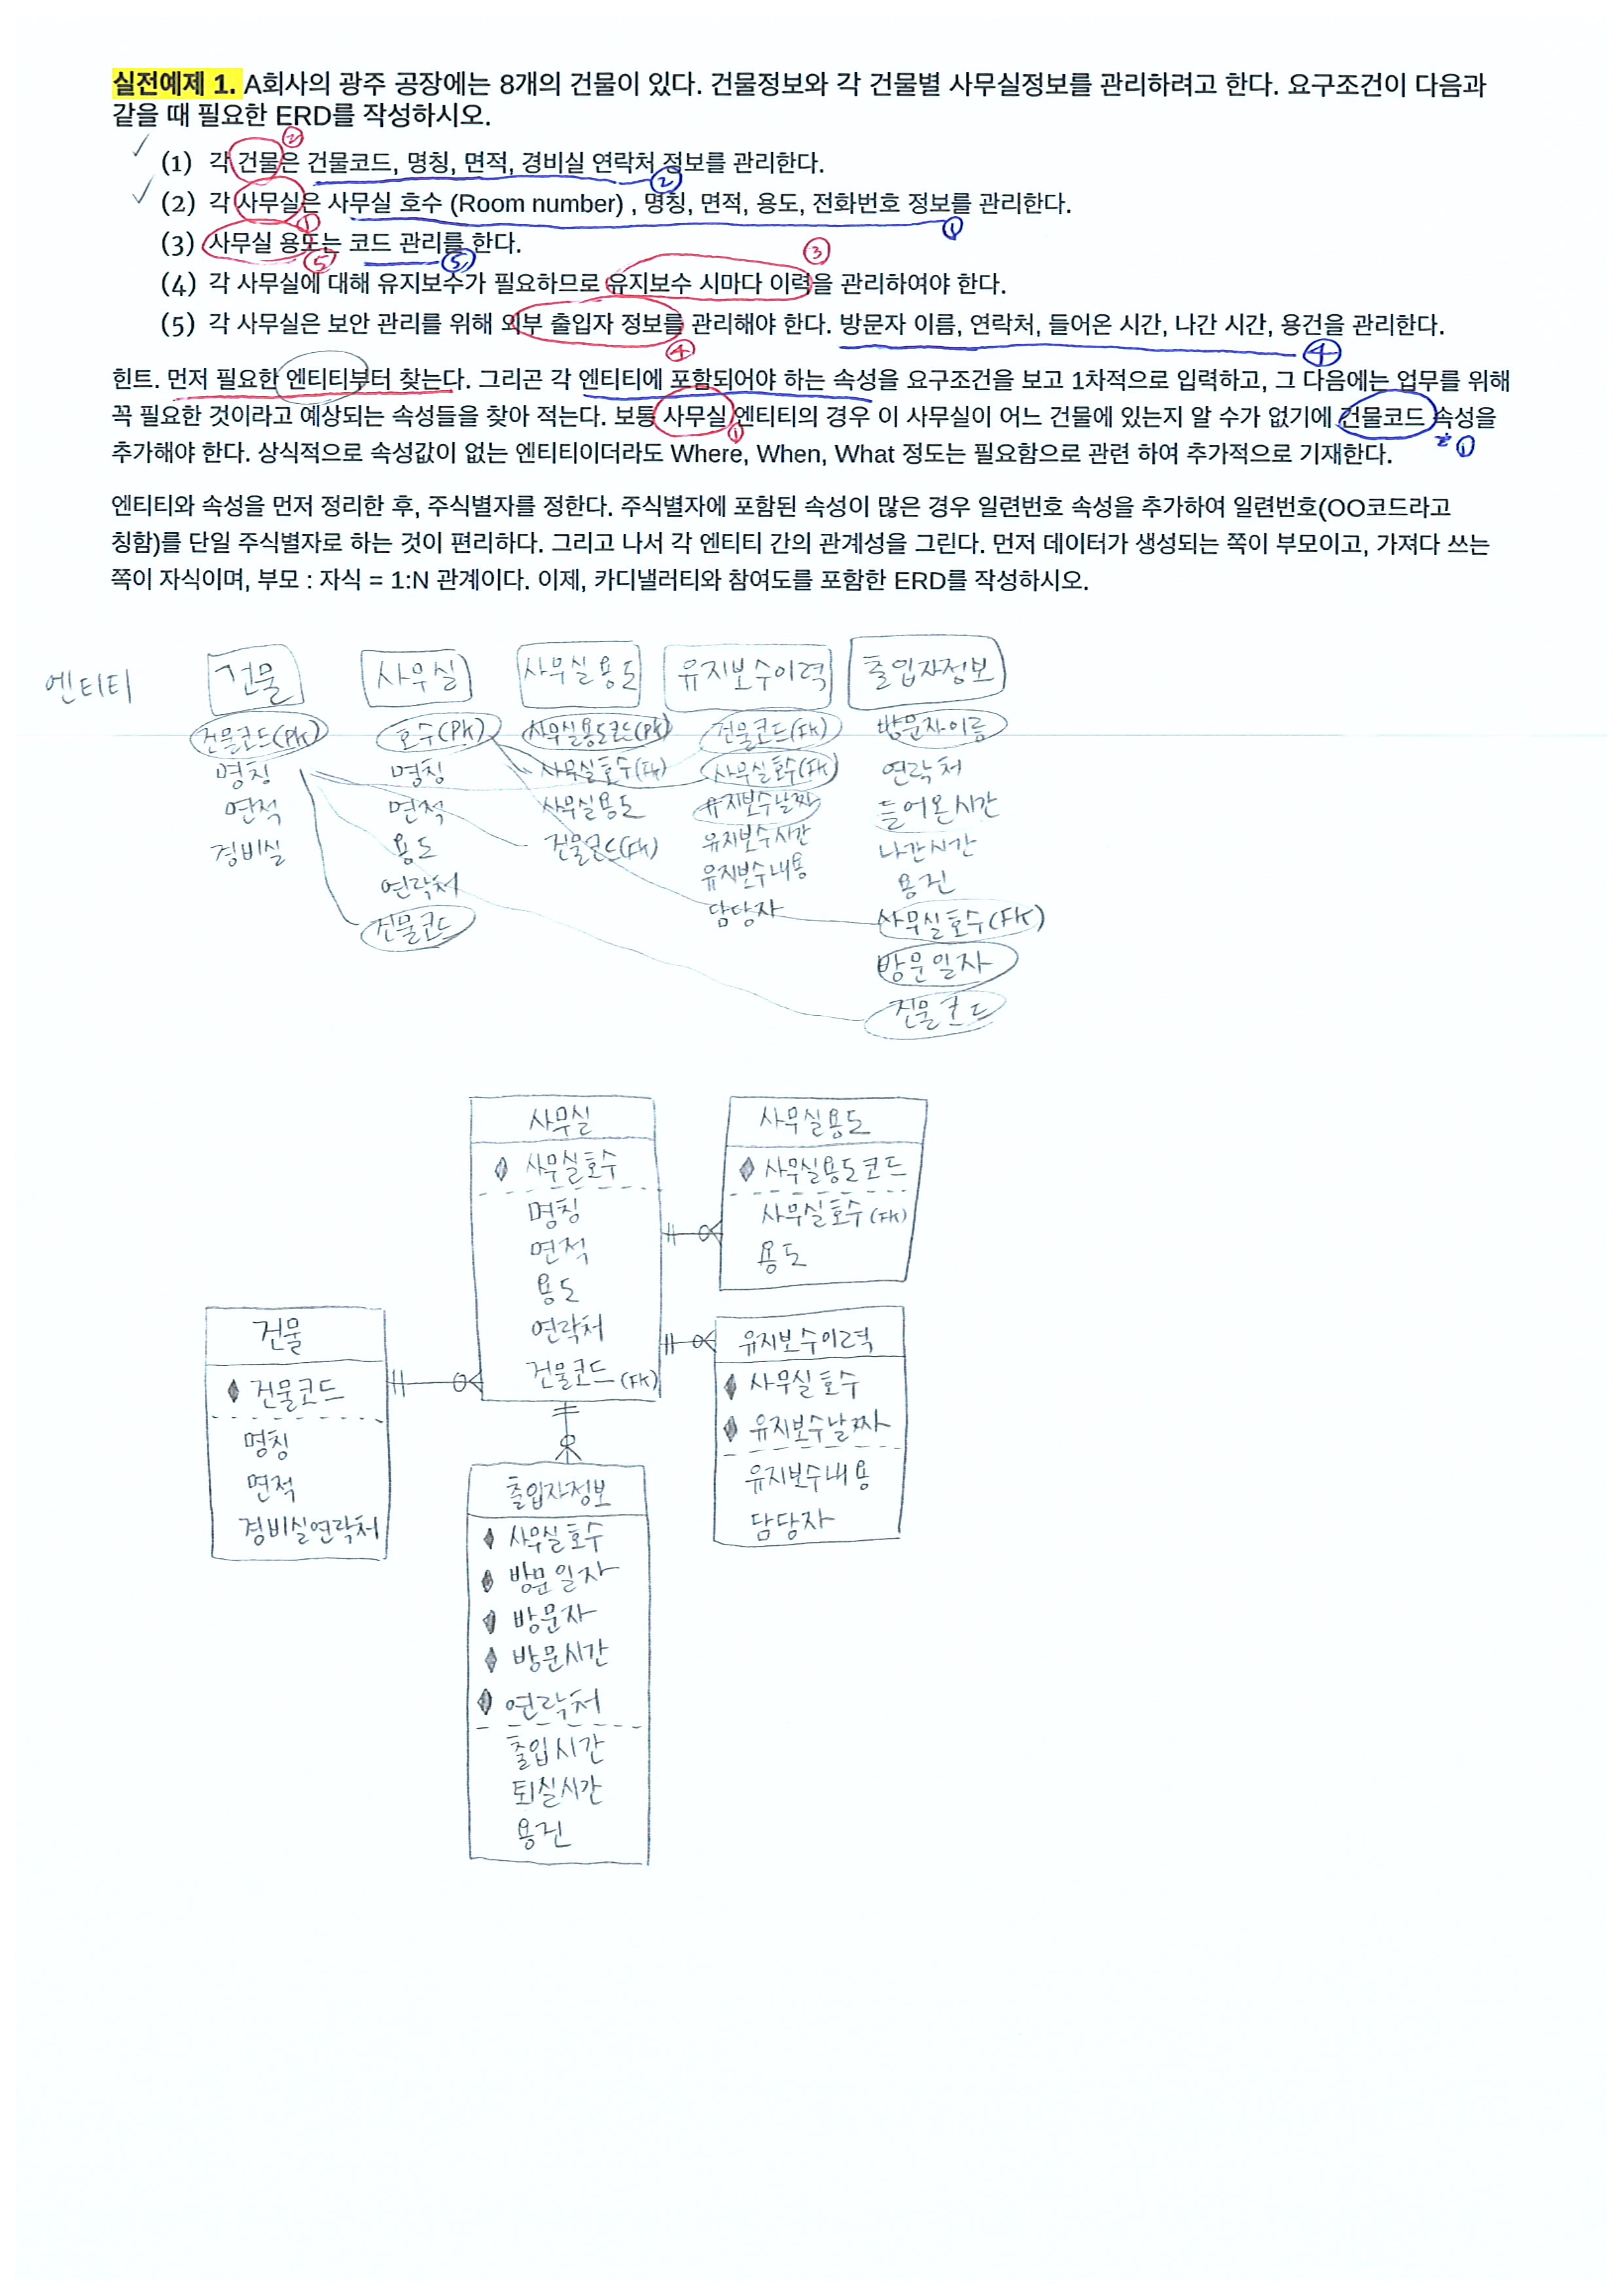 실전예제 1. A회사의 광주 공장에는 8개의 건물이 있다. 건물정보와 각 건물별 사무실정보를 관리하려고 한다. 요구조건이 다음과
같을 때 필요한 ERD를 작성하시오.
②
(1) 각 건물은 건물코드, 명칭, 면적, 경비실 연락처 정보를 관리한다.
②
(2) 각 사무실은 사무실 호수 (Room number) , 명칭, 면적, 용도, 전화번호 정보를 관리한다.
① ①
(3) 사무실 용도는 코드 관리를 한다.
⑤ ⑤ ③
(4) 각 사무실에 대해 유지보수가 필요하므로 유지보수 시마다 이력을 관리하여야 한다.
(5) 각 사무실은 보안 관리를 위해 외부 출입자 정보를 관리해야 한다. 방문자 이름, 연락처, 들어온 시간, 나간 시간, 용건을 관리한다.
④ ④
힌트. 먼저 필요한 엔티티부터 찾는다. 그리곤 각 엔티티에 포함되어야 하는 속성을 요구조건을 보고 1차적으로 입력하고, 그 다음에는 업무를 위해
꼭 필요한 것이라고 예상되는 속성들을 찾아 적는다. 보통 사무실 엔티티의 경우 이 사무실이 어느 건물에 있는지 알 수가 없기에 건물코드 속성을
① ①
추가해야 한다. 상식적으로 속성값이 없는 엔티티이더라도 Where, When, What 정도는 필요함으로 관련 하여 추가적으로 기재한다.
엔티티와 속성을 먼저 정리한 후, 주식별자를 정한다. 주식별자에 포함된 속성이 많은 경우 일련번호 속성을 추가하여 일련번호(OO코드라고
칭함)를 단일 주식별자로 하는 것이 편리하다. 그리고 나서 각 엔티티 간의 관계성을 그린다. 먼저 데이터가 생성되는 쪽이 부모이고, 가져다 쓰는
쪽이 자식이며, 부모 : 자식 = 1:N 관계이다. 이제, 카디낼러티와 참여도를 포함한 ERD를 작성하시오.
엔티티
건물
건물코드(PK)
명칭
면적
경비실
사무실
호수(PK)
명칭
면적
용도
연락처
건물코드
사무실용도
사무실용도코드(PK)
사무실호수(FK)
사무실용도
건물코드(FK)
유지보수이력
건물코드(FK)
사무실호수(FK)
유지보수날짜
유지보수시간
유지보수내용
담당자
출입자정보
방문자이름
연락처
들어온시간
나간시간
용건
사무실호수(FK)
방문일자
건물코드
사무실
사무실호수
명칭
면적
용도
연락처
건물코드(FK)
사무실용도
사무실용도코드
사무실호수(FK)
용도
건물
건물코드
명칭
면적
경비실연락처
유지보수이력
사무실호수
유지보수날짜
유지보수내용
담당자
출입자정보
사무실호수
방문일자
방문자
방문시간
연락처
출입시간
퇴실시간
용건